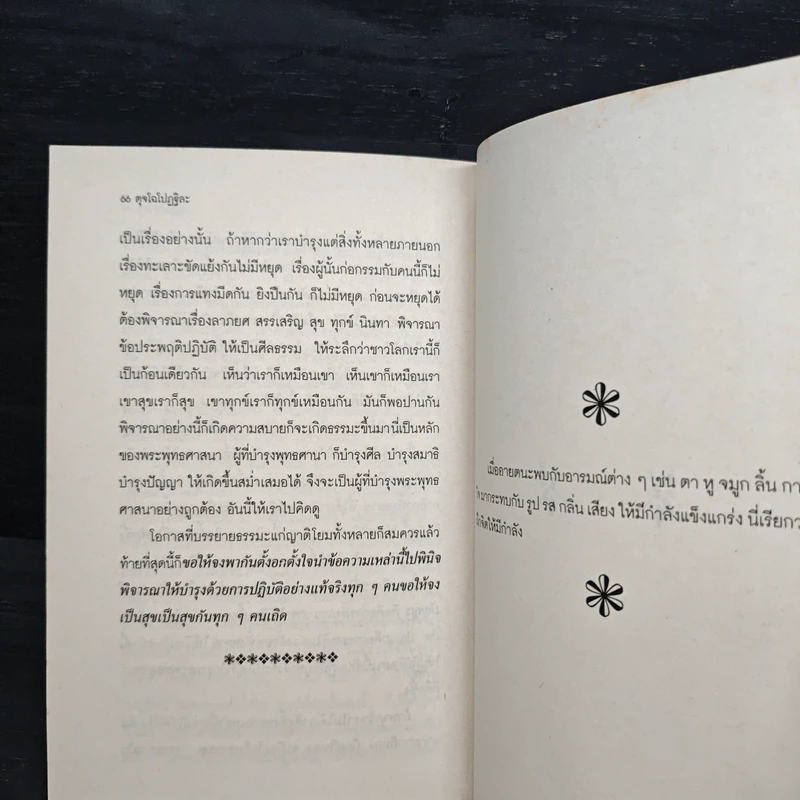 ๖๖ ตุจโฉโปฏฐิละ
เป็นเรื่องอย่างนั้น ถ้าหากว่าเราบำรุงแต่สิ่งทั้งหลายภายนอก
เรื่องทะเลาะขัดแย้งกันไม่มีหยุด เรื่องผู้นั้นก่อกรรมกับคนนี้ก็ไม่
หยุด เรื่องการแทงมีดกัน ยิงปืนกัน ก็ไม่มีหยุด ก่อนจะหยุดได้
ต้องพิจารณาเรื่องลาภยศ สรรเสริญ สุข ทุกข์ นินทา พิจารณา
ข้อประพฤติปฏิบัติ ให้เป็นศีลธรรม ให้ระลึกว่าชาวโลกเรานี้ก็
เป็นก้อนเดียวกัน เห็นว่าเราก็เหมือนเขา เห็นเขาก็เหมือนเรา
เขาสุขเราก็สุข เขาทุกข์เราก็ทุกข์เหมือนกัน มันก็พอปานกัน
พิจารณาอย่างนี้ก็เกิดความสบายก็จะเกิดธรรมะขึ้นมานี่เป็นหลัก
ของพระพุทธศาสนา ผู้ที่บำรุงพุทธศานา ก็บำรุงศีล บำรุงสมาธิ
บำรุงปัญญา ให้เกิดขึ้นสม่ำเสมอได้ จึงจะเป็นผู้ที่บำรุงพระพุทธ
ศาสนาอย่างถูกต้อง อันนี้ให้เราไปคิดดู
โอกาสที่บรรยายธรรมะแก่ญาติโยมทั้งหลายก็สมควรแล้ว
ท้ายที่สุดนี้ก็ขอให้จงพากันตั้งอกตั้งใจนำข้อความเหล่านี้ไปพินิจ
พิจารณาให้บำรุงด้วยการปฏิบัติอย่างแท้จริงทุก ๆ คนขอให้จง
เป็นสุขเป็นสุขกันทุก ๆ คนเถิด
เมื่ออายตนะพบกับอารมณ์ต่าง ๆ เช่น ตา หู จมูก ลิ้น กา
มากระทบกับ รูป รส กลิ่น เสียง ให้มีกำลังแข็งแกร่ง นี่เรียกว
จิตให้มีกำลัง